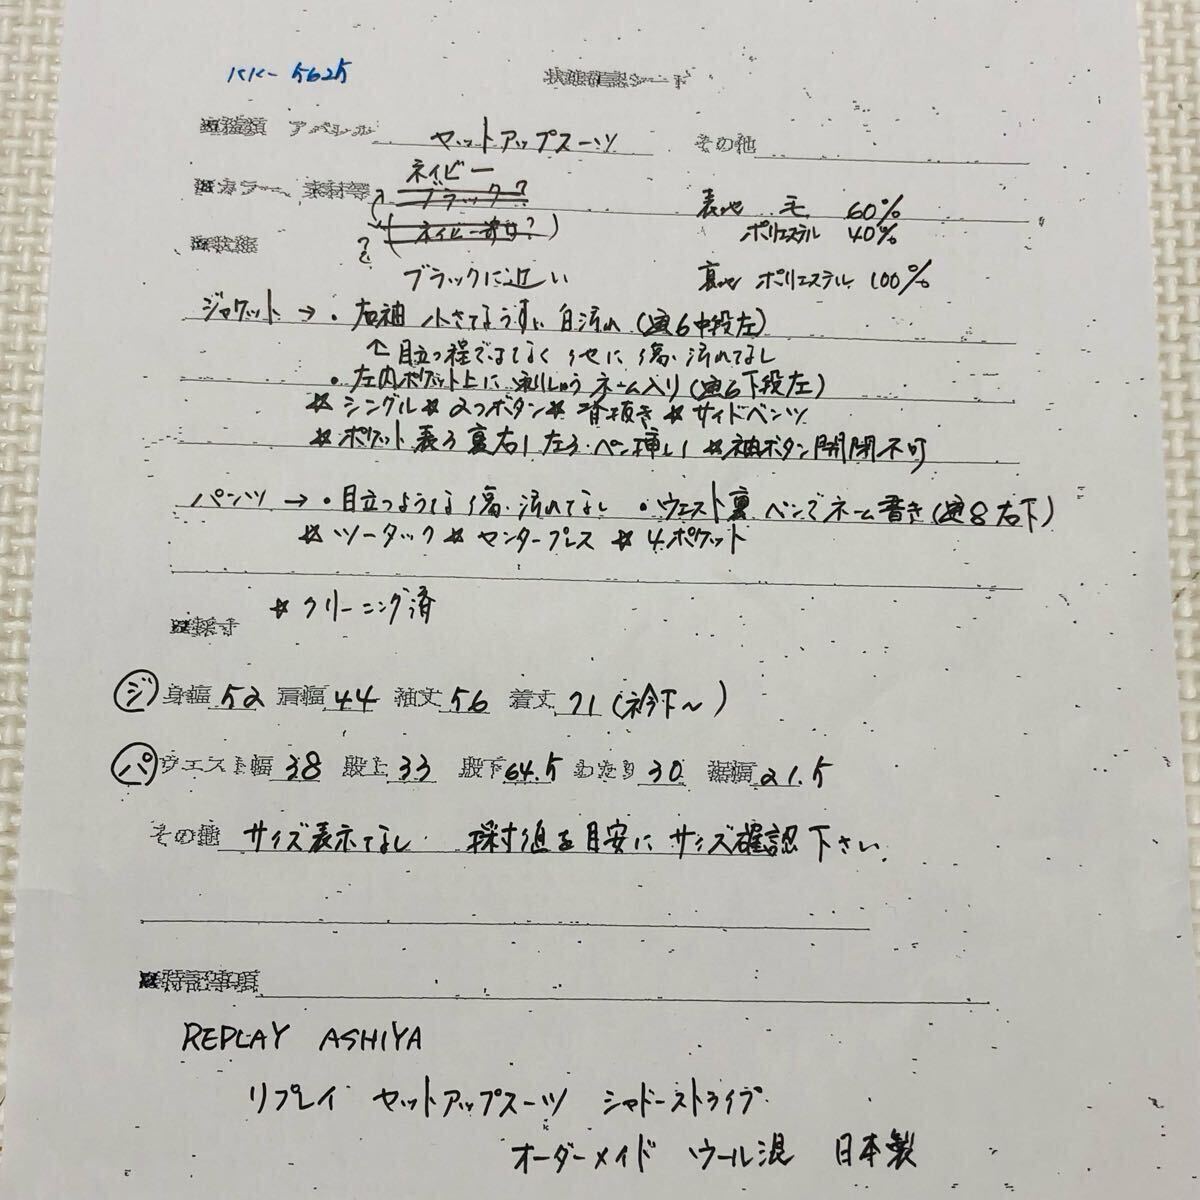 KK-5625 状態確認シート
■種類 アパレル セットアップスーツ その他
ネイビー
■カラー、素材等 ブラック? 表地 毛 60%
(ネイビー寄り?) ポリエステル 40%
■状態
ブラックに近い 裏地 ポリエステル 100%
ジャケット→・右袖 小さなうすい白汚れ(画6中段左)
↑目立つ程でもなく他に傷、汚れなし
・左内ポケット上に刺しゅうネーム入り(画6下段左)
☆シングル☆2つボタン☆背抜き☆サイドベンツ
☆ポケット表3裏右1左3・ペン挿し1 ☆袖ボタン開閉不可
パンツ→・目立つような傷、汚れなし ・ウエスト裏ペンでネーム書き(画8右下)
☆ツータック☆センタープレス ☆4ポケット
☆クリーニング済
■採寸
ジ 身幅52 肩幅44 袖丈56 着丈71(衿下~)
パ ウエスト幅38 股上33 股下64.5 わたり30 裾幅21.5
その他 サイズ表示なし 採寸値を目安にサイズ確認下さい。
■特記事項
REPLAY ASHIYA
リプレイ セットアップスーツ シャドーストライプ
オーダーメイド ウール混 日本製